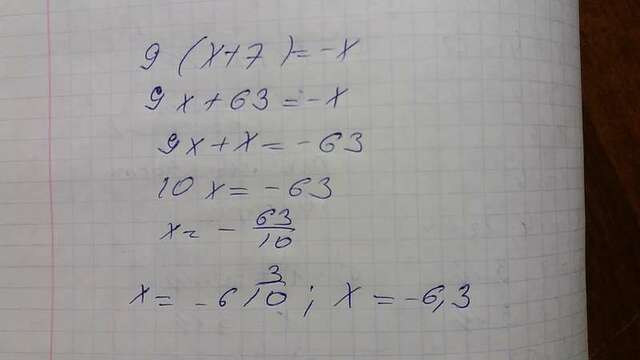 9 (x+7) = -x
9x + 63 = -x
9x + x = -63
10x = -63
x = - 63/10
x = -6 3/10 ; x = -6,3